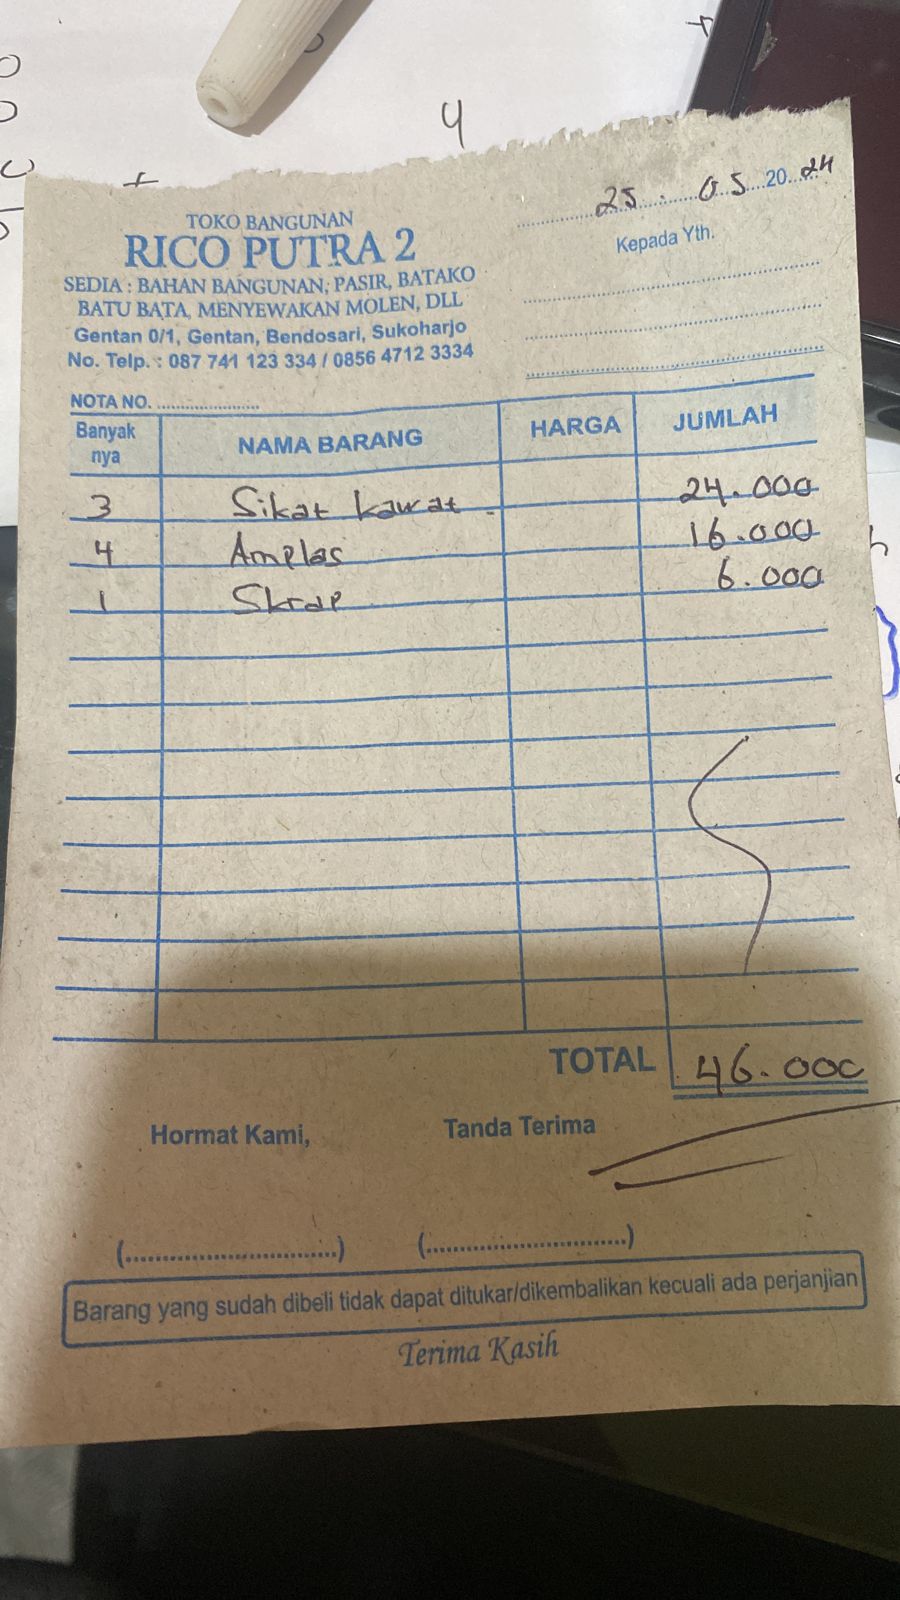 4
25. 05 2024
TOKO BANGUNAN
RICO PUTRA 2
SEDIA : BAHAN BANGUNAN, PASIR, BATAKO
BATU BATA, MENYEWAKAN MOLEN, DLL
Gentan 0/1, Gentan, Bendosari, Sukoharjo
No. Telp. : 087 741 123 334 / 0856 4712 3334
Kepada Yth.
NOTA NO. ......................
Banyak nya NAMA BARANG HARGA JUMLAH
3 Sikat kawat 24.000
4 Amplas 16.000
1 Skrap 6.000
TOTAL 46.000
Hormat Kami, Tanda Terima
(................................) (..............................)
Barang yang sudah dibeli tidak dapat ditukar/dikembalikan kecuali ada perjanjian
Terima Kasih